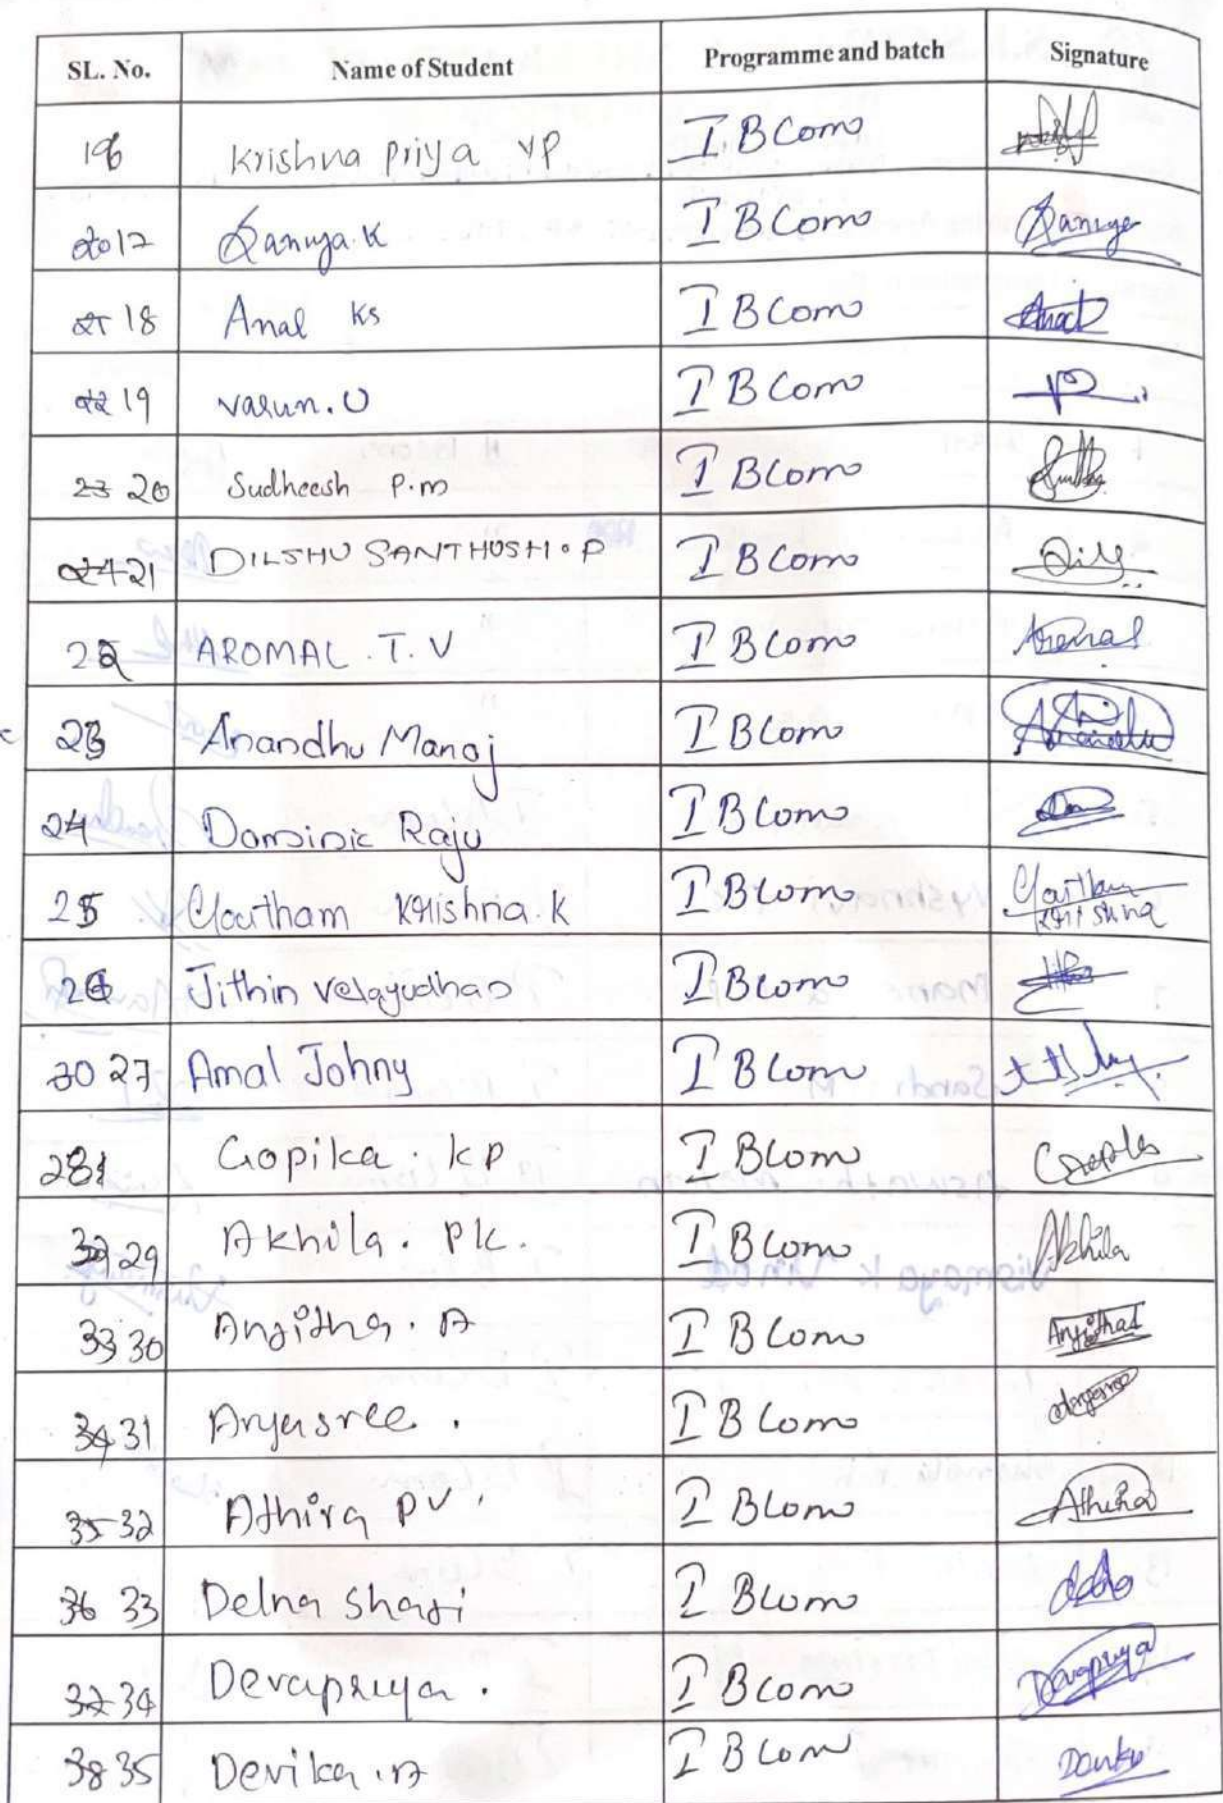 SL. No. Name of Student Programme and batch Signature
16 Krishna Priya VP I BCom
20 17 Ramya.K I BCom Ramya
21 18 Anal KS I BCom
22 19 Varun.U I BCom
23 20 Sudheesh P.m I BCom
24 21 DILSHU SANTHOSH.P I BCom
22 AROMAL .T.V I BCom Aromal
23 Anandhu Manoj I BCom Anandhu
24 Dominic Raju I BCom
25 Goutham Krishna.K I BCom Goutham Krishna
26 Jithin Velayudhan I BCom
30 27 Amal Johny I BCom
28 Gopika. KP I BCom
32 29 Akhila. PK. I BCom Akhila
33 30 Anjitha. A I BCom Anjitha
34 31 Aryasree. I BCom
35 32 Athira PV I BCom Athira
36 33 Delna Shaji I BCom
37 34 Devapriya. I BCom Devapriya
38 35 Devika.A I BCom